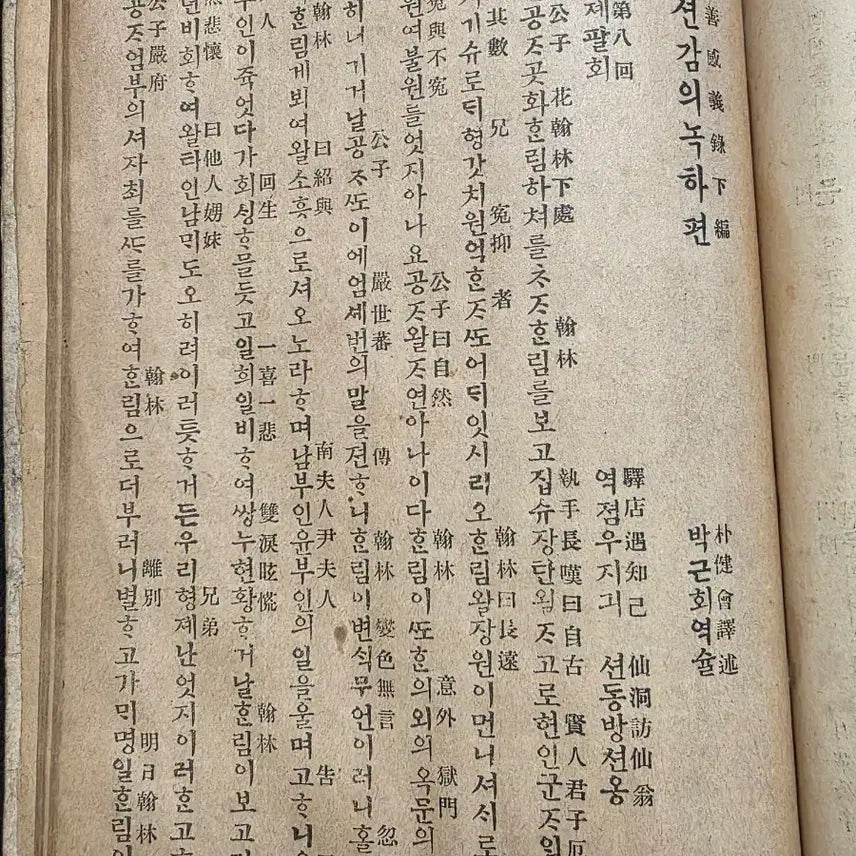 善感義錄下編
션감의녹하편
朴健會譯述
박근회역슐
第八回
제팔회
驛店遇知己 仙洞訪仙翁
역졈우지긔 션동방션옹
公子 花翰林下處 翰林 執手長嘆曰自古 賢人君子厄
공ᄌᆞ곳화ᄒᆞᆫ림하쳐를ᄎᆞᄌᆞᄒᆞᆫ림를보고집슈쟝탄왈ᄌᆞ고로현인군ᄌᆞ의
其數 兄 冤抑 者 翰林曰長遠
기슈로ᄃᆡ형갓치원억ᄒᆞᆫᄌᆞᄯᅩ어ᄃᆡ잇시리오ᄒᆞᆫ림왈쟝원이먼니셔시로
冤與不冤 公子曰自然 翰林 意外 獄門
원여불원를엇지아나요공ᄌᆞ왈ᄌᆞ연아나이다ᄒᆞᆫ림이ᄯᅩᄒᆞᆫ의외의옥문의
公子 嚴世蕃 傳 翰林 變色無言 忽
히니기거날공ᄌᆞᄯᅩ이에엄셰번의말을젼ᄒᆞ니ᄒᆞᆫ림이변식무언이러니홀
翰林 曰紹興 南夫人尹夫人 告
ᄒᆞᆫ림게뵈여왈소흥으로셔오노라ᄒᆞ며남부인윤부인의일을울며고ᄒᆞ니
人 回生 一喜一悲 雙淚眩慌 翰林
부인이쥭엇다가회싱ᄒᆞ믈듯고일희일비ᄒᆞ여쌍누현황ᄒᆞ거날ᄒᆞᆫ림이보고
悲懷 曰他人娚妹 兄弟
년비회ᄒᆞ여왈타인남ᄆᆡ도오히려이러틋ᄒᆞ거든우리형졔난엇지이러ᄒᆞᆫ고
公子嚴府 翰林 離別 明日翰林
공ᄌᆞ엄부의셔자최를ᄯᆞ를가ᄒᆞ여ᄒᆞᆫ림으로더부러니별ᄒᆞ고가ᄆᆡ명일ᄒᆞᆫ림이